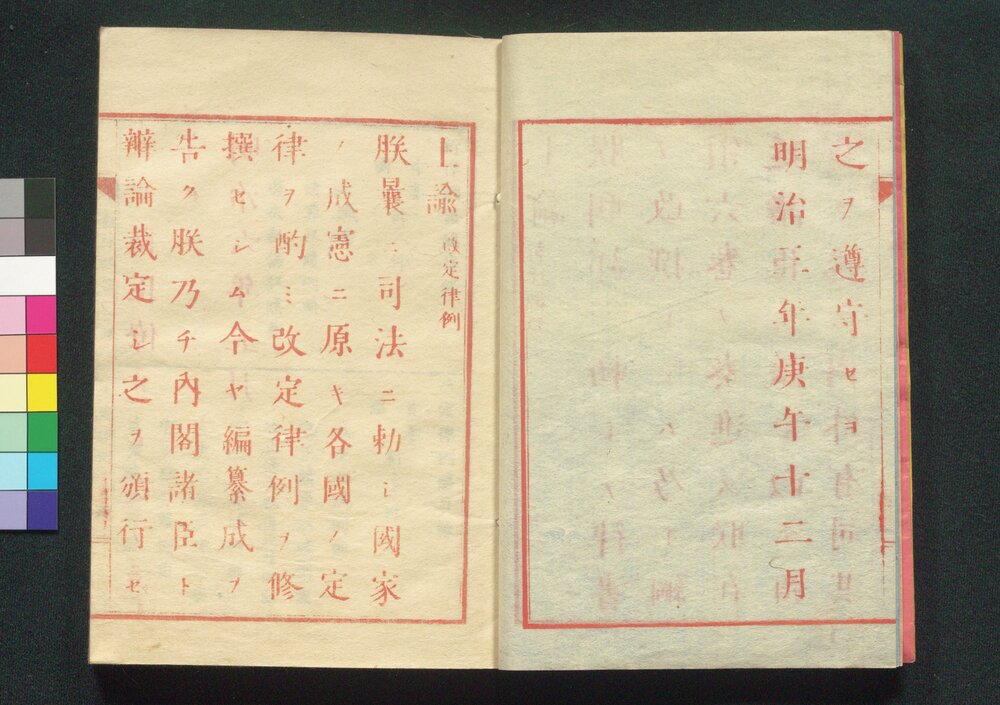 之ヲ遵守セヨ
明治三年庚午十二月
上諭 改定律例
朕曩ニ司法ニ勅シ國家
ノ成憲ニ原キ各國ノ定
律ヲ酌ミ改定律例ヲ修
撰セシム今ヤ編纂成ヲ
告ク朕乃チ內閣諸臣ト
辨論裁定シ之ヲ頒行セ